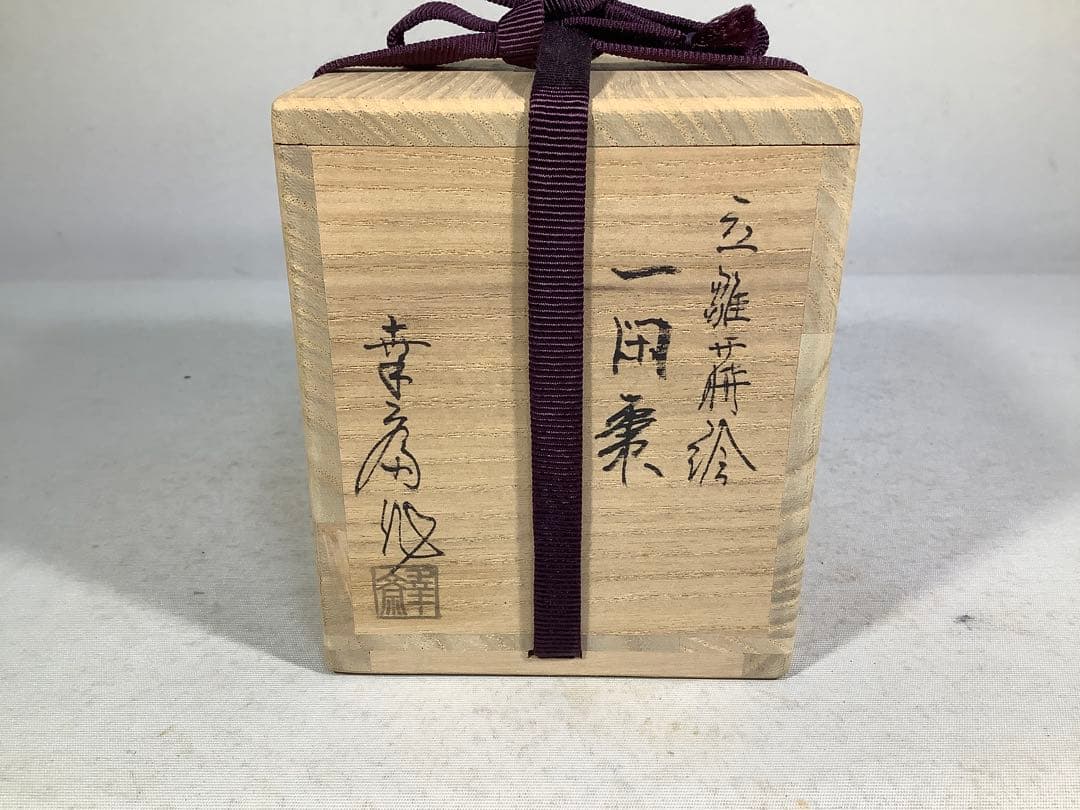 立雛蒔絵
一閑棗
幸斎作
幸斎